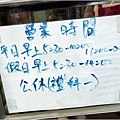 營業時間
平日早上5:30-10:30
假日早上5:30-10:00
公休(禮拜一)